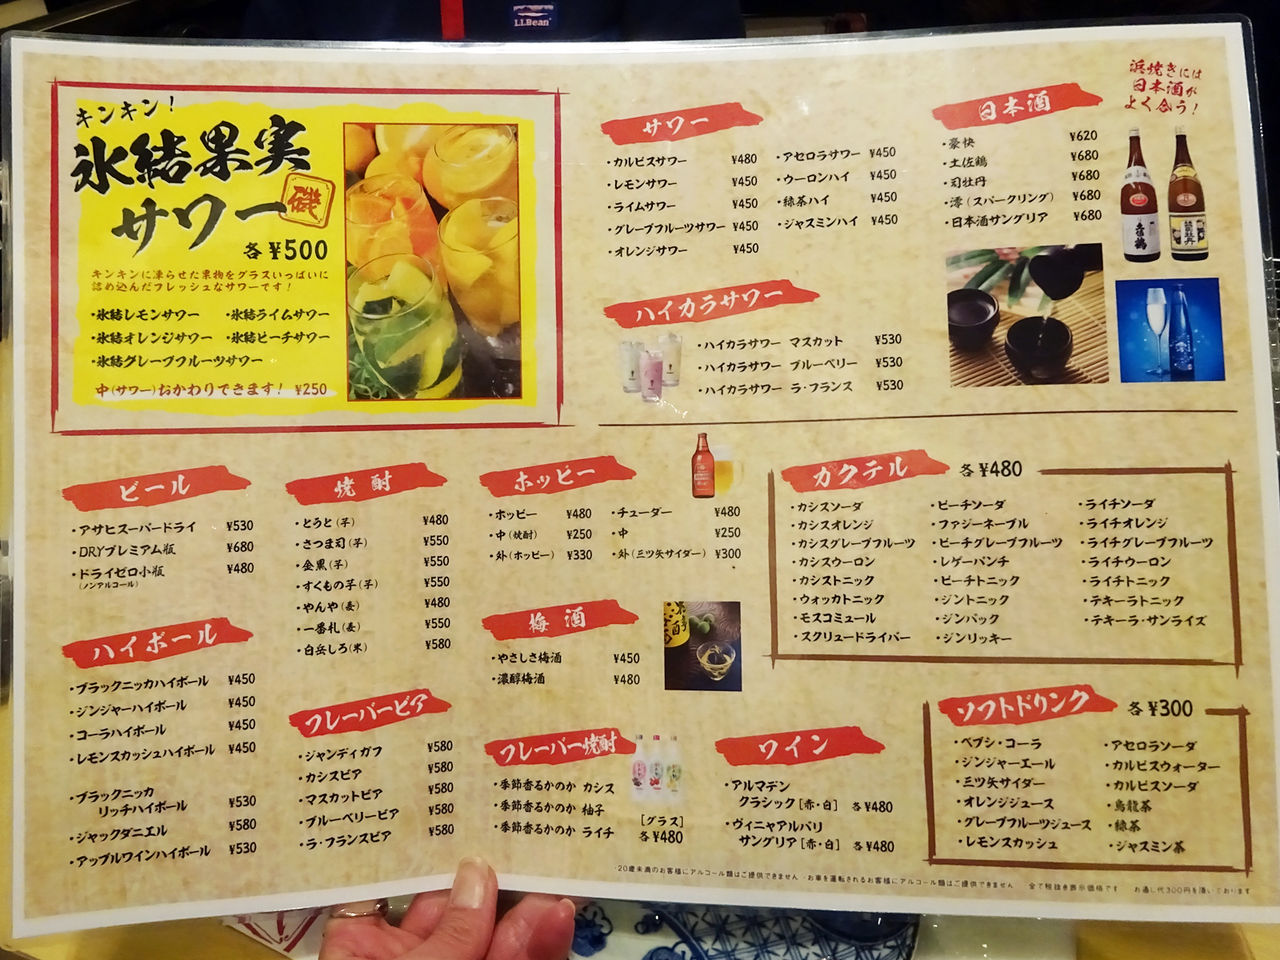 L.L.Bean
キンキン!
氷結果実
サワー
磯
各¥500
キンキンに凍らせた果物をグラスいっぱいに
詰め込んだフレッシュなサワーです!
・氷結レモンサワー ・氷結ライムサワー
・氷結オレンジサワー ・氷結ピーチサワー
・氷結グレープフルーツサワー
中(サワー)おかわりできます! ¥250
サワー
・カルピスサワー ¥480
・レモンサワー ¥450
・ライムサワー ¥450
・グレープフルーツサワー ¥450
・オレンジサワー ¥450
・アセロラサワー ¥450
・ウーロンハイ ¥450
・緑茶ハイ ¥450
・ジャスミンハイ ¥450
ハイカラサワー
・ハイカラサワー マスカット ¥530
・ハイカラサワー ブルーベリー ¥530
・ハイカラサワー ラ・フランス ¥530
日本酒
・豪快 ¥620
・土佐鶴 ¥680
・司牡丹 ¥680
・澪(スパークリング) ¥680
・日本酒サングリア ¥680
浜焼きには
日本酒が
よく合う!
土佐鶴
司牡丹
澪
ビール
・アサヒスーパードライ ¥530
・DRYプレミアム瓶 ¥680
・ドライゼロ小瓶 ¥480
(ノンアルコール)
ハイボール
・ブラックニッカハイボール ¥450
・ジンジャーハイボール ¥450
・コーラハイボール ¥450
・レモンスカッシュハイボール ¥450
・ブラックニッカ
リッチハイボール ¥530
・ジャックダニエル ¥580
・アップルワインハイボール ¥530
焼酎
・とうと(芋) ¥480
・さつま司(芋) ¥550
・金黒(芋) ¥550
・すくもの芋(芋) ¥550
・やんや(麦) ¥480
・一番札(麦) ¥550
・白岳しろ(米) ¥580
フレーバービア
・シャンディガフ ¥580
・カシスビア ¥580
・マスカットビア ¥580
・ブルーベリービア ¥580
・ラ・フランスビア ¥580
ホッピー
・ホッピー ¥480
・中(焼酎) ¥250
・外(ホッピー) ¥330
・チューダー ¥480
・中 ¥250
・外(三ツ矢サイダー) ¥300
梅酒
・やさしさ梅酒 ¥450
・濃醇梅酒 ¥480
フレーバー焼酎
・季節香るかのか カシス
・季節香るかのか 柚子
・季節香るかのか ライチ
[グラス]
各¥480
ワイン
・アルマデン
クラシック[赤・白] 各¥480
・ヴィニャアルバリ
サングリア[赤・白] 各¥480
カクテル 各¥480
・カシスソーダ
・カシスオレンジ
・カシスグレープフルーツ
・カシスウーロン
・カシストニック
・ウォッカトニック
・モスコミュール
・スクリュードライバー
・ピーチソーダ
・ファジーネーブル
・ピーチグレープフルーツ
・レゲーパンチ
・ピーチトニック
・ジントニック
・ジンバック
・ジンリッキー
・ライチソーダ
・ライチオレンジ
・ライチグレープフルーツ
・ライチウーロン
・ライチトニック
・テキーラトニック
・テキーラ・サンライズ
ソフトドリンク 各¥300
・ペプシ・コーラ
・ジンジャーエール
・三ツ矢サイダー
・オレンジジュース
・グレープフルーツジュース
・レモンスカッシュ
・アセロラソーダ
・カルピスウォーター
・カルピスソーダ
・烏龍茶
・緑茶
・ジャスミン茶
・20歳未満のお客様にアルコール類はご提供できません ・お車を運転されるお客様にアルコール類はご提供できません ・全て税抜き表示価格です お通し代300円を頂いております